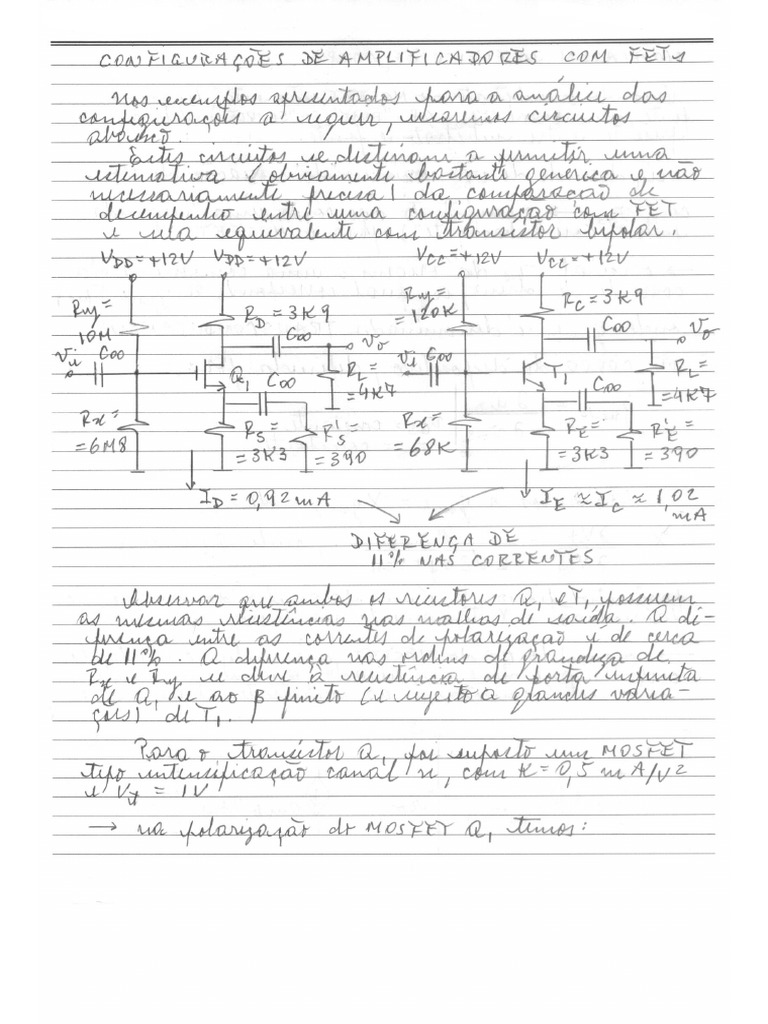 CONFIGURAÇÕES DE AMPLIFICADORES COM FETs
Nos exemplos apresentados para a análise das
configurações a seguir, usaremos circuitos
abaixo.
Estes circuitos se destinam a permitir uma
estimativa (obviamente bastante genérica e não
necessariamente precisa) da comparação de
desempenho entre uma configuração com FET
e sua equivalente com transistor bipolar.
VDD=+12V VDD=+12V VCC=+12V VCC=+12V
Ry= 10M
RD = 3K9
Ry= =120K
RC = 3K9
vi C∞
C∞ vo
vi C∞
C∞ vo
Q1 C∞
RL =4K7
T1 C∞
RL =4K7
Rx= =6M8
RS = =3K3
R'S = =390
Rx= =68K
RE = =3K3
R'E = =390
ID = 0,92 mA
IE ≈ IC ≈ 1,02 mA
DIFERENÇA DE
11% NAS CORRENTES
Observar que ambos os resistores Q1 e T1 possuem
as mesmas resistências nas malhas de saída. A di-
ferença entre as correntes de polarização é de cerca
de 11%. A diferença nas ordens de grandeza de
Rx e Ry se deve à resistência de porta infinita
de Q1 e ao β finito (e sujeito a grandes varia-
ções) de T1.
Para o transistor Q1 foi suposto um MOSFET
tipo intensificação canal n, com K = 0,5 mA/V2
e Vt = 1V
→ na polarização do MOSFET Q1 temos: